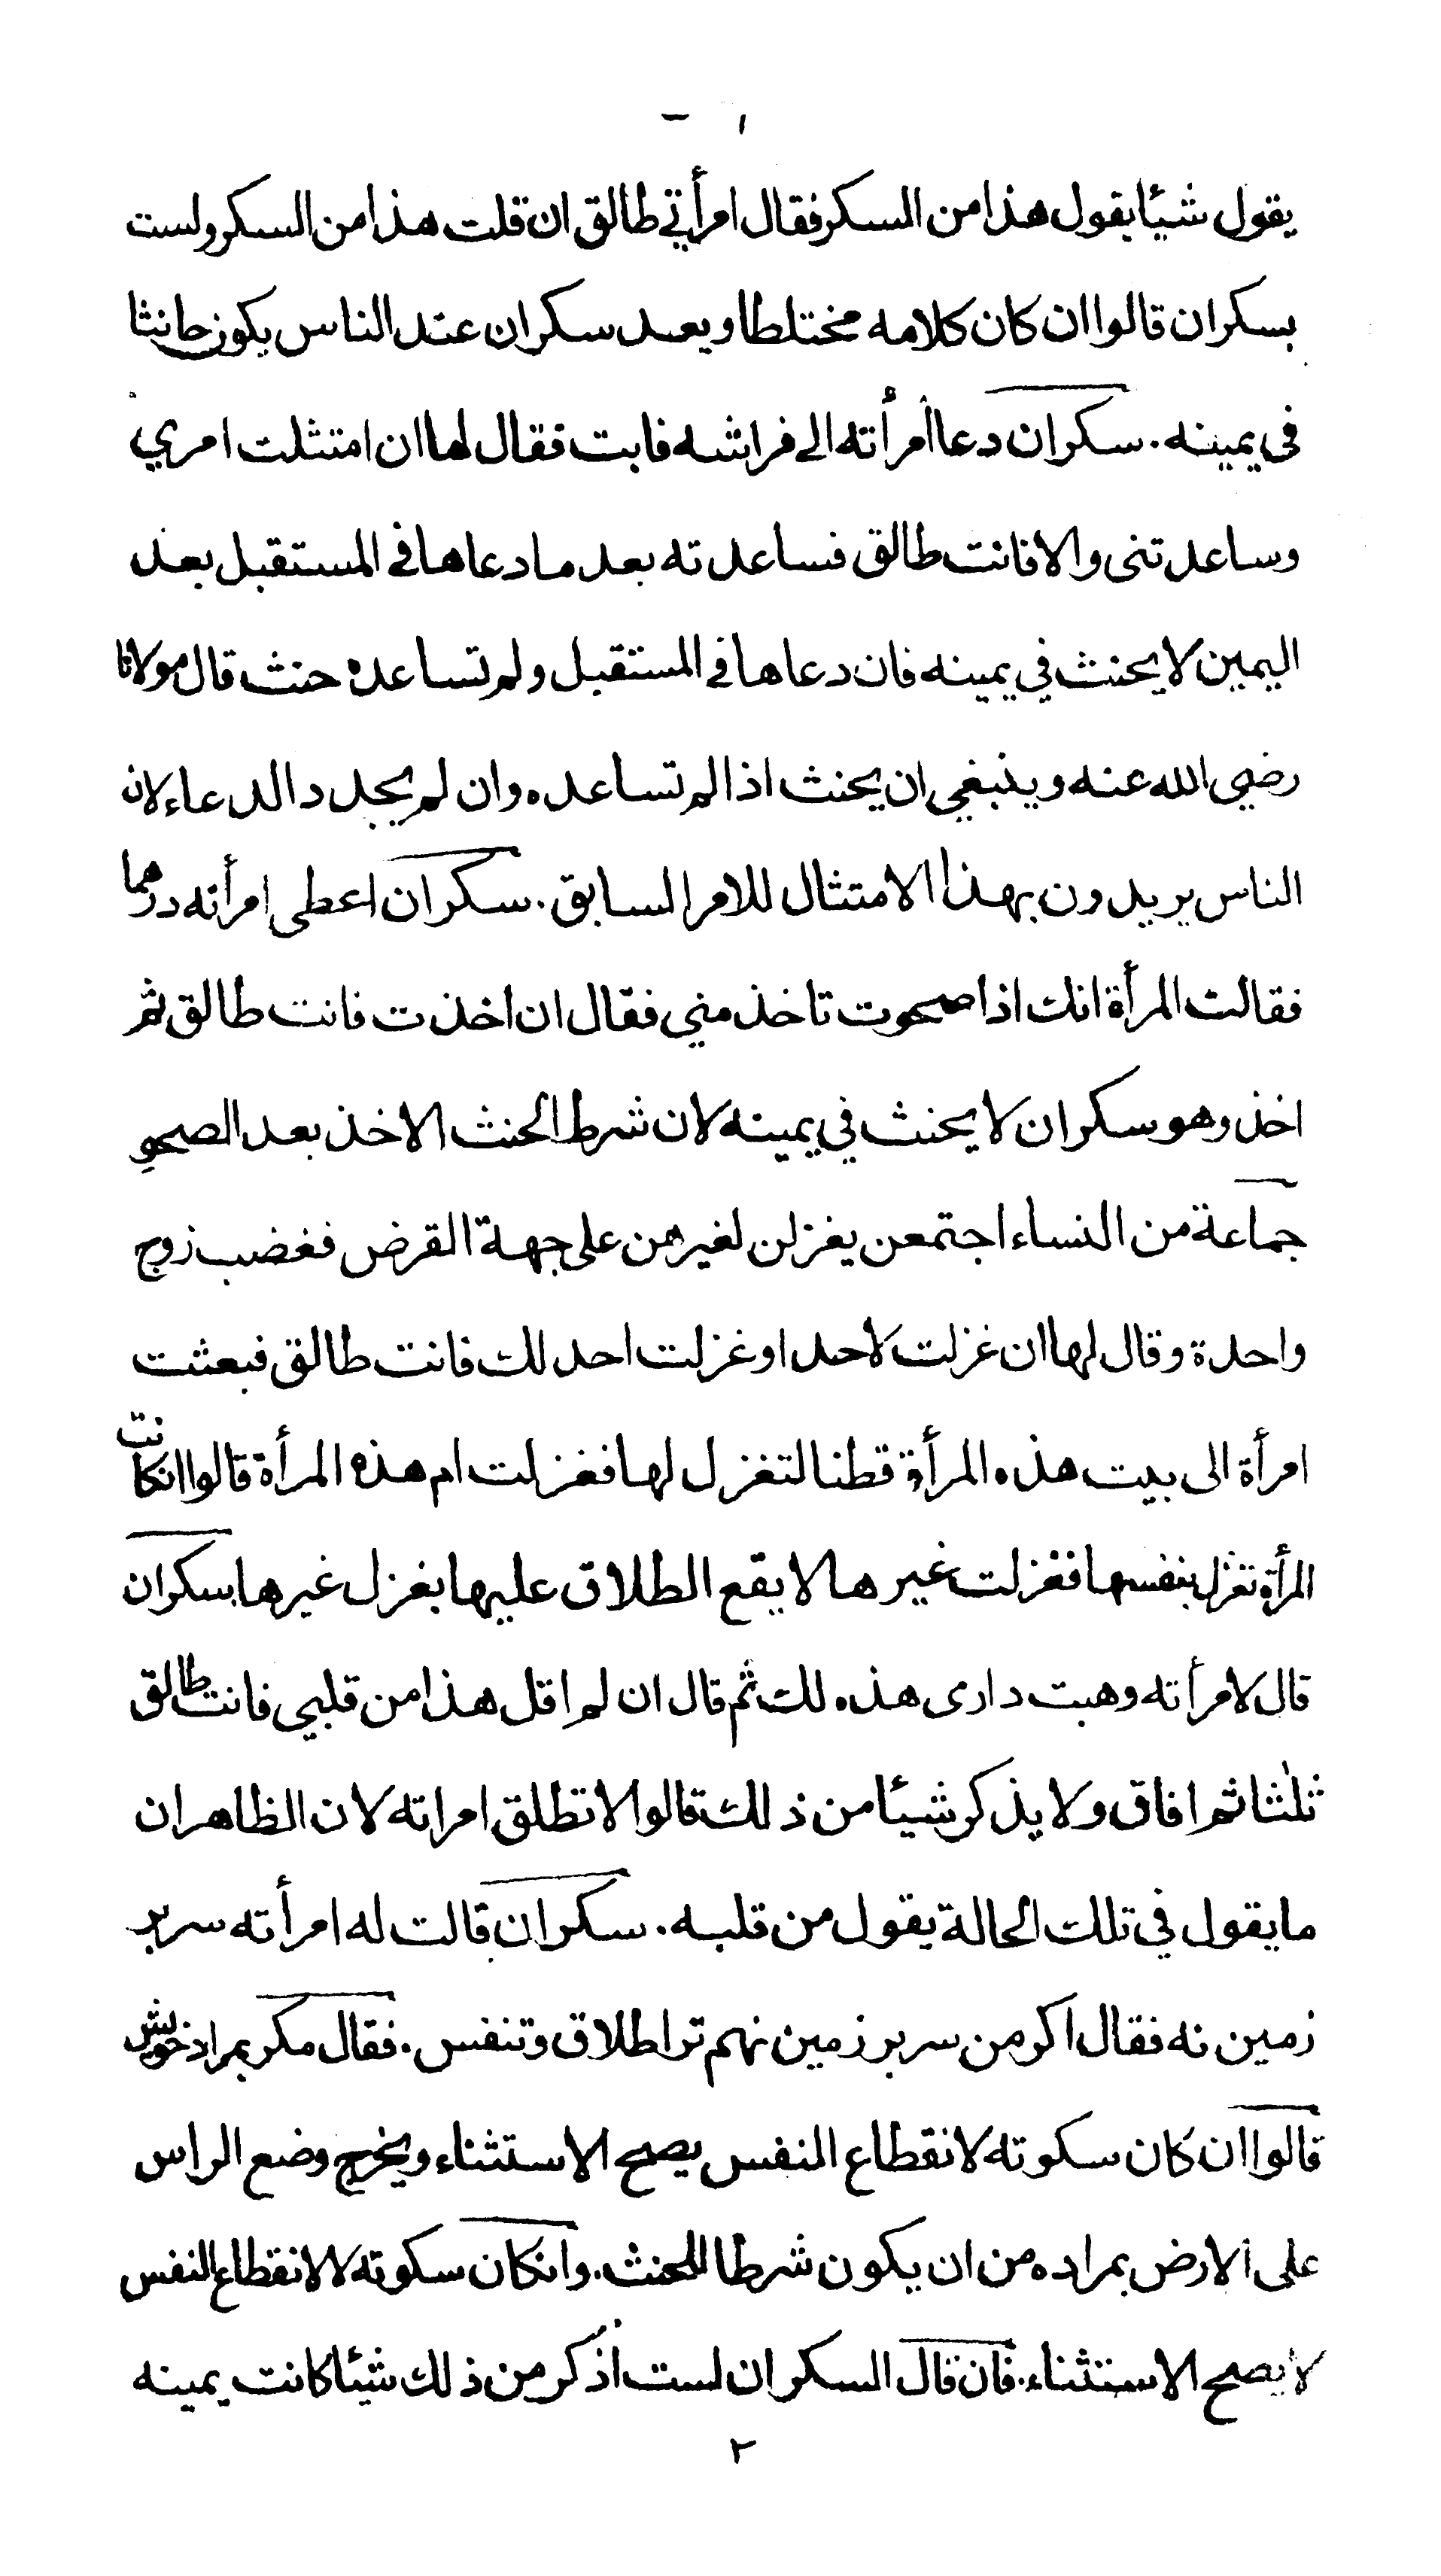 يقول شيئا يقول هذا من السكر فقال امرأتي طالق ان قلت هذا من السكر ولست
بسكران قالوا ان كان كلامه مختلطا ويعد سكران عند الناس يكون حانثا
في يمينه . سكران دعا امرأته الى فراشه فابت فقال لها ان امتثلت امري
وساعدتنى والا فانت طالق فساعدته بعد ما دعاها في المستقبل بعد
اليمين لا يحنث في يمينه فان دعاها في المستقبل ولم تساعده حنث قال مولانا
رضي الله عنه وينبغي ان يحنث اذا لم تساعده وان لم يجدد الدعاء لان
الناس يريدون بهذا الامتثال للامر السابق . سكران اعطى امرأته درهما
فقالت المرأة انك اذا صحوت تاخذ مني فقال ان اخذت فانت طالق ثم
اخذ وهو سكران لا يحنث في يمينه لان شرط الحنث الاخذ بعد الصحو
جماعة من النساء اجتمعن يغزلن لغيرهن على جهة القرض فغضب زوج
واحدة وقال لها ان غزلت لاحد او غزلت احد لك فانت طالق فبعثت
امرأة الى بيت هذه المرأة قطنا لتغزل لها فغزلت ام هذه المرأة قالوا ان كانت
المرأة تغزل بنفسها فغزلت غيرها لا يقع الطلاق عليها بغزل غيرها . سكران
قال لامرأته وهبت دارى هذه لك ثم قال ان لم اقل هذا من قلبي فانت طالق
ثلثا ثم افاق ولا يذكر شيئا من ذلك قالوا لا تطلق امراته لان الظاهر ان
ما يقول في تلك الحالة يقول من قلبه . سكران قالت له امرأته سر بر
زمين نه فقال اكر من سر بر زمين نهم ترا طلاق وتنفس . فقال مكر بمراد خويش
قالوا ان كان سكوته لانقطاع النفس يصح الاستثناء ويخرج وضع الراس
على الارض بمراده من ان يكون شرطا للحنث . وان كان سكوته لا لانقطاع النفس
لا يصح الاستثناء . فان قال السكران لست اذكر من ذلك شيئا كانت يمينه
٢